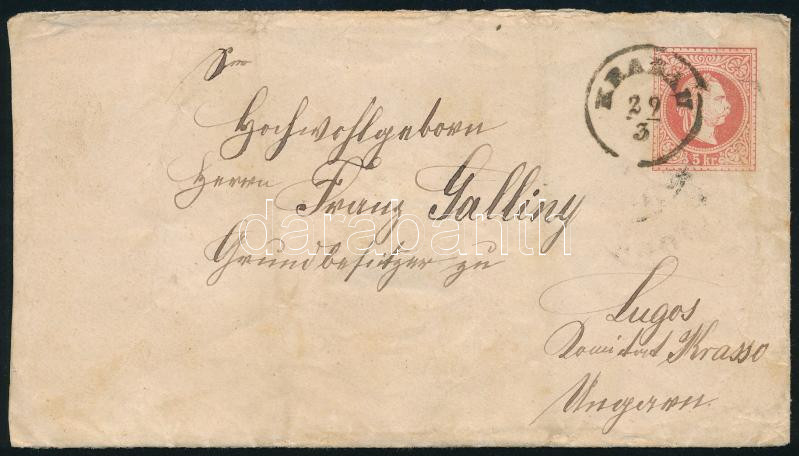 Sr
Hochwohlgeborn
Herrn Franz Galliny
Grundbesitzer zu
Lugos
Komitat Krasso
Ungarn.
KRAKAU
29
3
5 kr.
darabanth